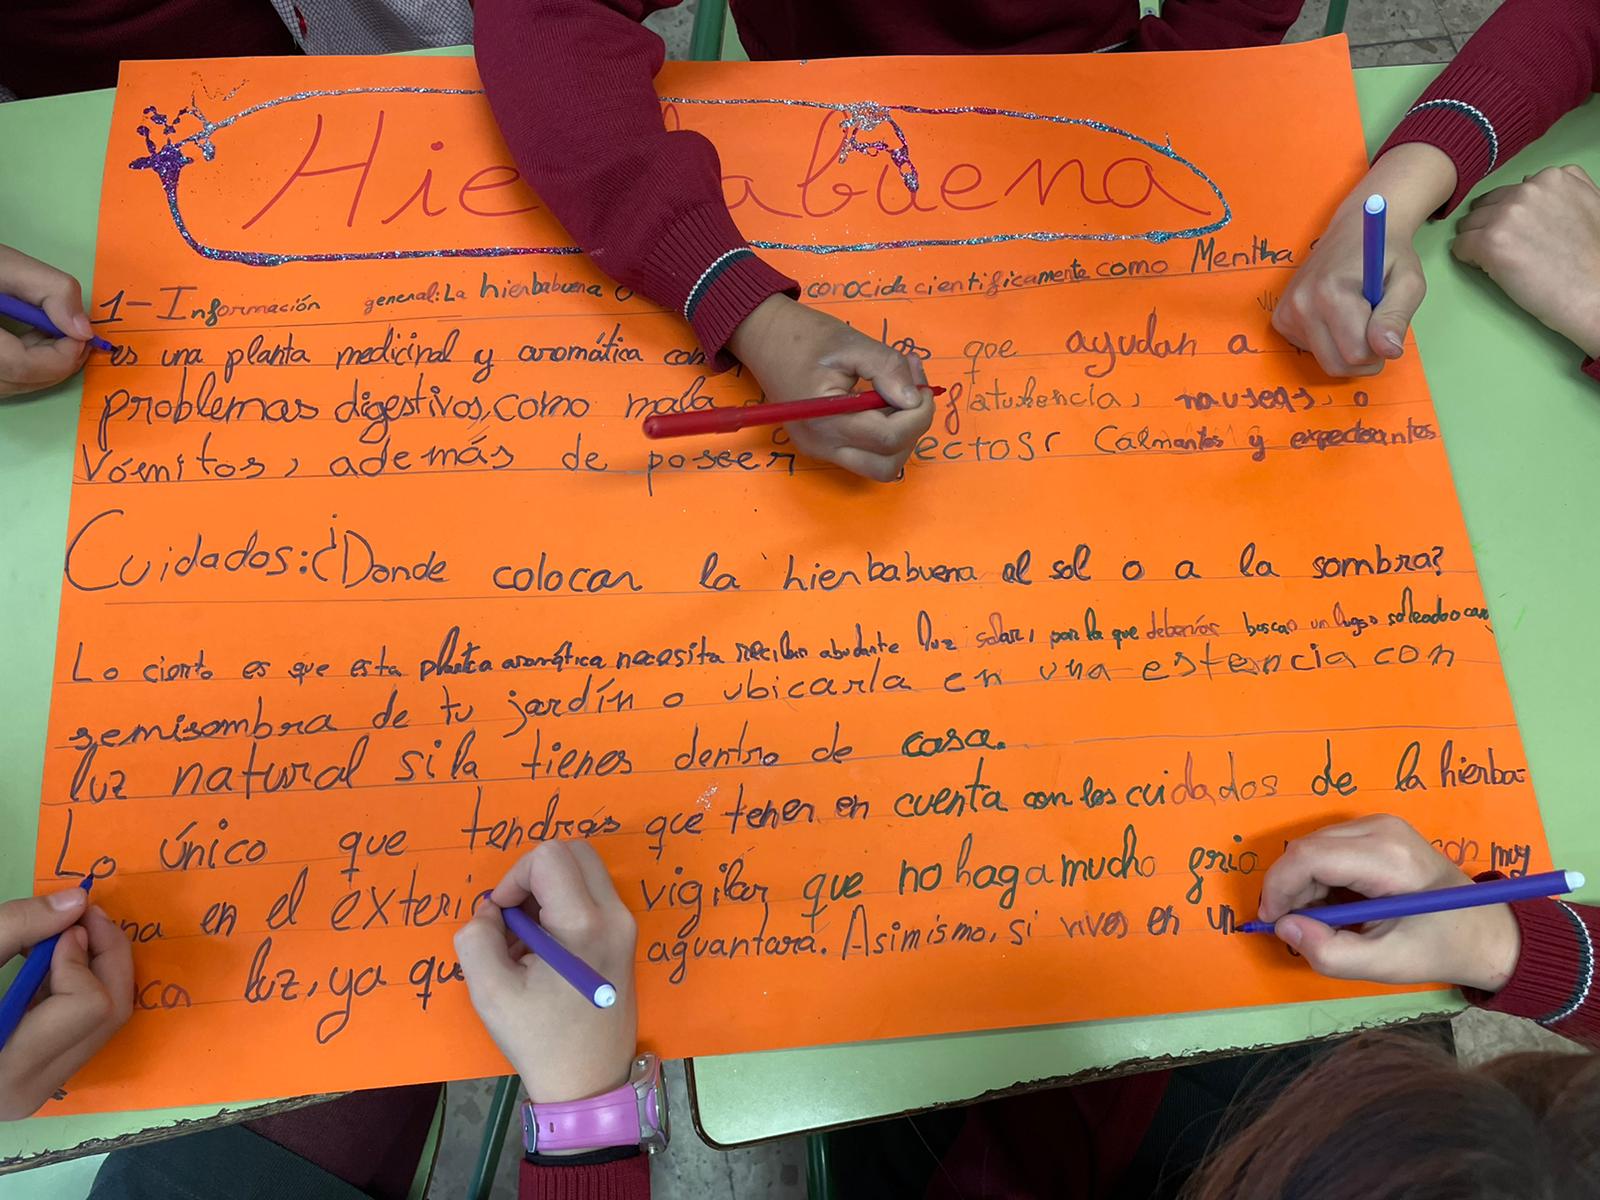 Hie abuena
1-Información general: La hierbabuena o conocida científicamente como Mentha
es una planta medicinal y aromática con que ayudan a
problemas digestivos, como mala flatulencia, nauseas, o
Vómitos, además de poseer ectos Calmantes y expectorantes
Cuidados: ¿Donde colocar la hierbabuena al sol o a la sombra?
Lo cierto es que esta planta aromática necesita recibir abudante luz solar, por la que deberías buscar un lugar soleado o con
semisombra de tu jardín o ubicarla en una estencia con
luz natural si la tienes dentro de casa.
Lo único que tendrás que tener en cuenta con los cuidados de la hierba-
na en el exterio vigilar que no haga mucho frio con muy
oca luz, ya que aguantara. Asimismo, si vives en un